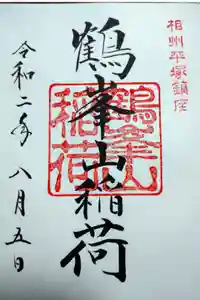 相州平塚鎮座
鶴峯山稲荷
鶴峯山稲荷
令和二年
八月五日